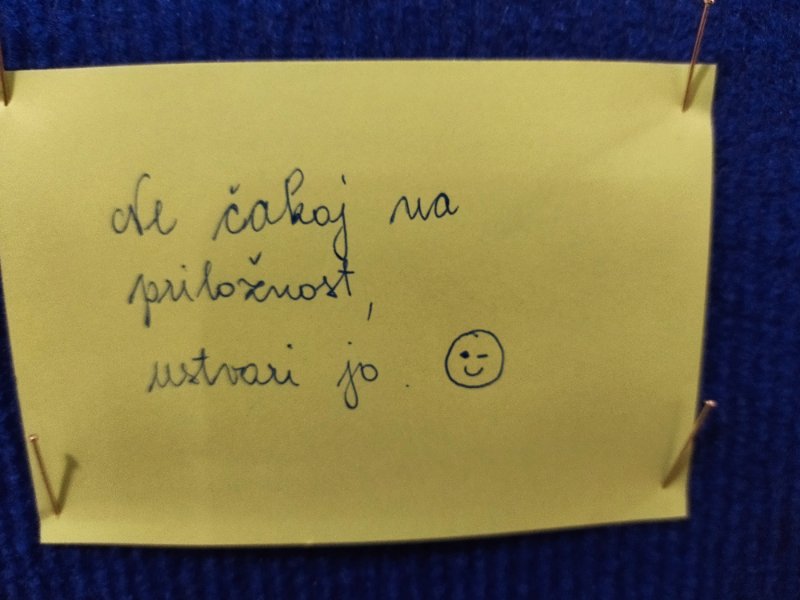 Ne čakaj na
priložnost,
ustvari jo.